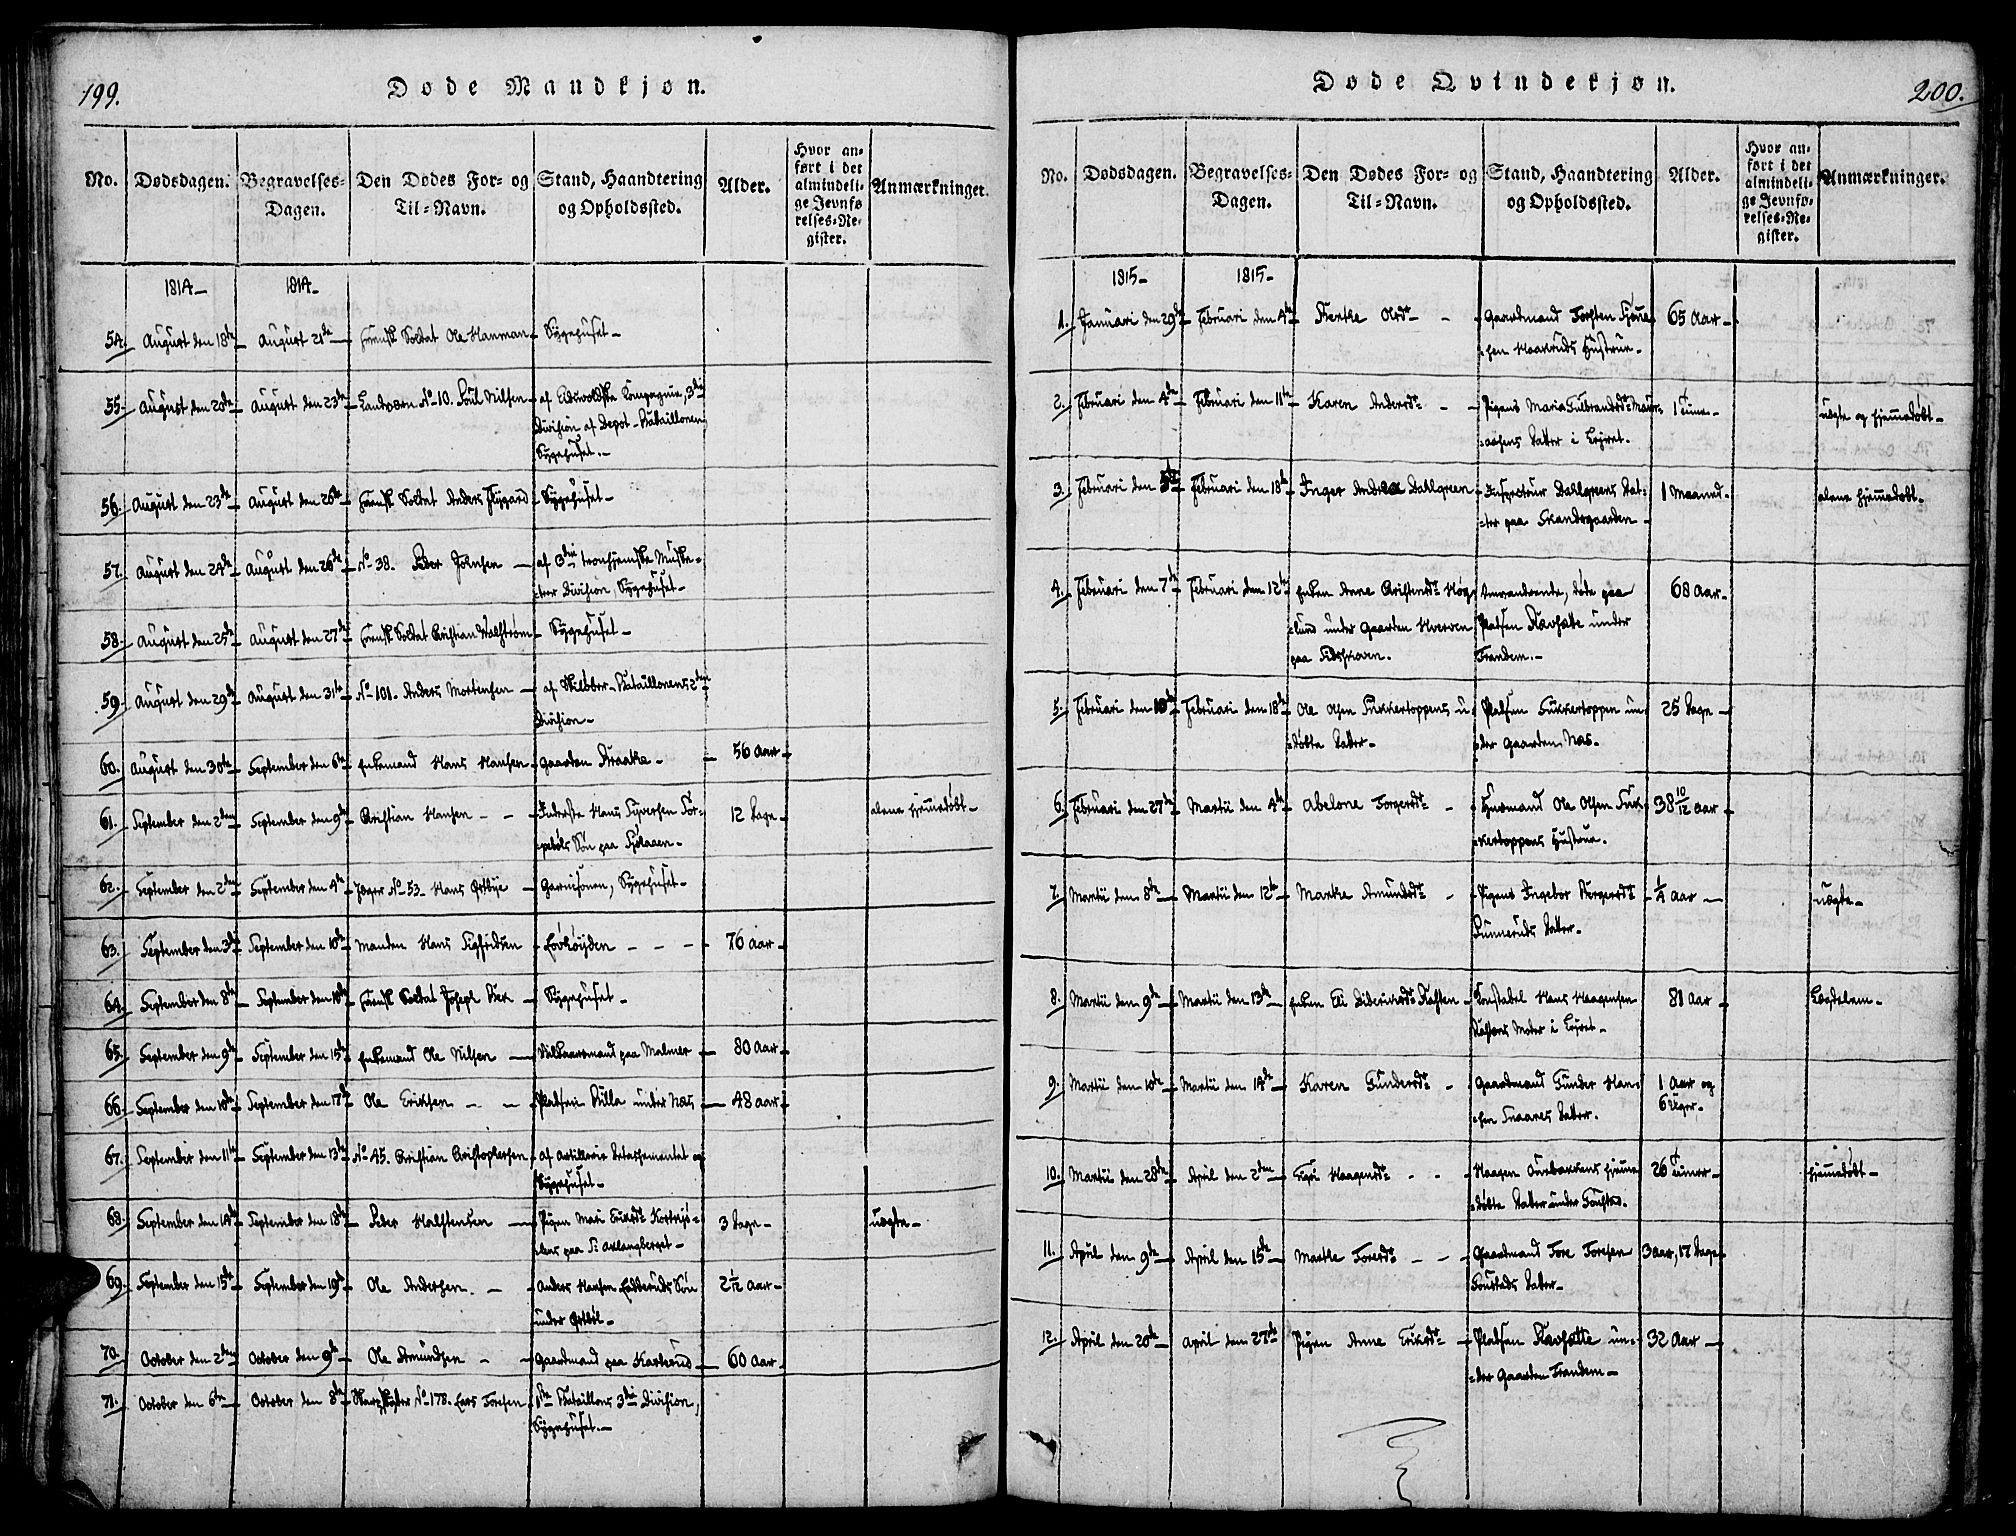 199.
Døde Mandkjøn.
No. Dødsdagen. Begravelses-Dagen. Den Dødes For- og Til-Navn. Stand, Haandtering og Opholdssted. Alder. Hvor anført i det almindelige Jevnførelses-Register. Anmærkninger.
1814 1814
54. August den 18de August 21de Svensk Soldat Ole Hanman Sygehuset
55. August den 20de August den 23de Landværn No 10. Poul Nilsen af Eidsvoldske Compagnie, 3die
Division af Depot-Bataillonen
Sygehuset.
56. August den 23de August den 26de Svensk Soldat Anders Flygard Sygehuset
57. August den 24de August den 26de No 38. Peder Johnsen af 3die tronhjemske Muske-
teer Division, Sygehuset
58. August den 25de August den 27de Svensk Soldat Christian Wallstrøm Sygehuset
59. August den 29de August den 31te No 101. Anders Mortensen af Skiløber-Bataillonens 2den
Division
60. August den 30te September den 6te Enkemand Hans Hansen Gaarden Braatte 56 Aar
61. September den 2den September den 9de Christian Hansen Inderste Hans Syversen Tor-
Søn paa 12 Dage alene hjemmedøbt
62. September den 2den September den 4de Jeger No 53 Hans Østbye Garnisonen, Sygehuset
63. September den 3die September den 10de Manden Hans Sigfridsen Løvhøyden 76 Aar
64. September den 8de September den 10de Svensk Soldat Joseph Bex Sygehuset
65. September den 9de September den 15de Enkemand Ole Nilsen Vilkaarsmand paa Malmer 80 Aar
66. September den 10de September den 17de Ole Eriksen Pladsen Lilla under Næs 48 Aar
67. September den 11te September den 13de No 45. Christian Christophersen af Artillerie Detachementet og
Sygehuset
68. September den 14de September den 18de Peder Halstensen Pigen Mari Eriksdtr
paa 3 Dage uægte
69. September den 15de September den 19de Ole Andersen Anders Hansen Søn
under Østbøl 2 1/12 Aar
70. October den 2den October den 9de Ole Amundsen Gaardmand paa Karterud 60 Aar
71. October den 6te October den 8de No 178. Lars Toresen 1ste Bataillons 3die Division,
Sygehuset.
Døde Qvindekjøn.
200.
No. Dødsdagen. Begravelses-Dagen. Den Dødes For- og Til-Navn. Stand, Haandtering og Opholdssted. Alder. Hvor anført i det almindelige Jevnførelses-Register. Anmærkninger.
1815 1815
1. Januari den 29de Februari den 4de Olsdtr Gaardmand Torsten
Haakruds Hustrue 65 Aar
2. Februari den 4de Februari den 11te Karen Andersdtr Pigens Maria Gulbrandsdtr
Datter i Leyret. 1 Time uægte og hjemmedøbt
3. Februari den 5te Februari den 18de Inger Andrea Dallgreen Inspecteur Dallgreens Dat-
ter paa Skandsgaarden 1 Maaned alene hjemmedøbt
4. Februari den 7de Februari den 12te Enken Anne Christensdtr Høg-
lund under Gaarden Hverven
paa Eidskoven. Omvandrende, døde paa
Pladsen Slævsætte under
Frandem. 68 Aar
5. Februari den 10de Februari den 18de Ole Olsen Sukkertoppens u-
døbte Datter Pladsen Sukkertoppen un-
der Gaarden Næs. 25 Dage
6. Februari den 27de Martii den 4de Abelone Torgersdtr Huusmand Ole Olsen Suk-
kertoppens Hustrue. 38 10/12 Aar
7. Martii den 8de Martii den 12te Marthe Amundsdtr Pigens Ingebor Børgersdtr
Datter 1/4 Aar uægte
8. Martii den 9de Martii den 13de Enken Eli Didericksdtr Kasten Constabel Hans Haagensen
Kastens Moder i Leyret 81 Aar Lægdelem
9. Martii den 10de Martii den 14de Karen Gundersdtr Gaardmand Gunder Han-
sen Snaares Datter. 1 Aar og
6 Uger
10. Martii den 28de April den 2den Siri Haagensdtr Haagen hjemme-
døbte Datter under 26 Timer hjemmedøbt
11. April den 9de April den 15de Marthe Toresdtr Gaardmand Tore Toresen
Datter 3 Aar, 17 Dage
12. April den 20de April den 27de Pigen Anne Eriksdtr Pladsen Slævsætte un-
der Gaarden Frandem 32 Aar